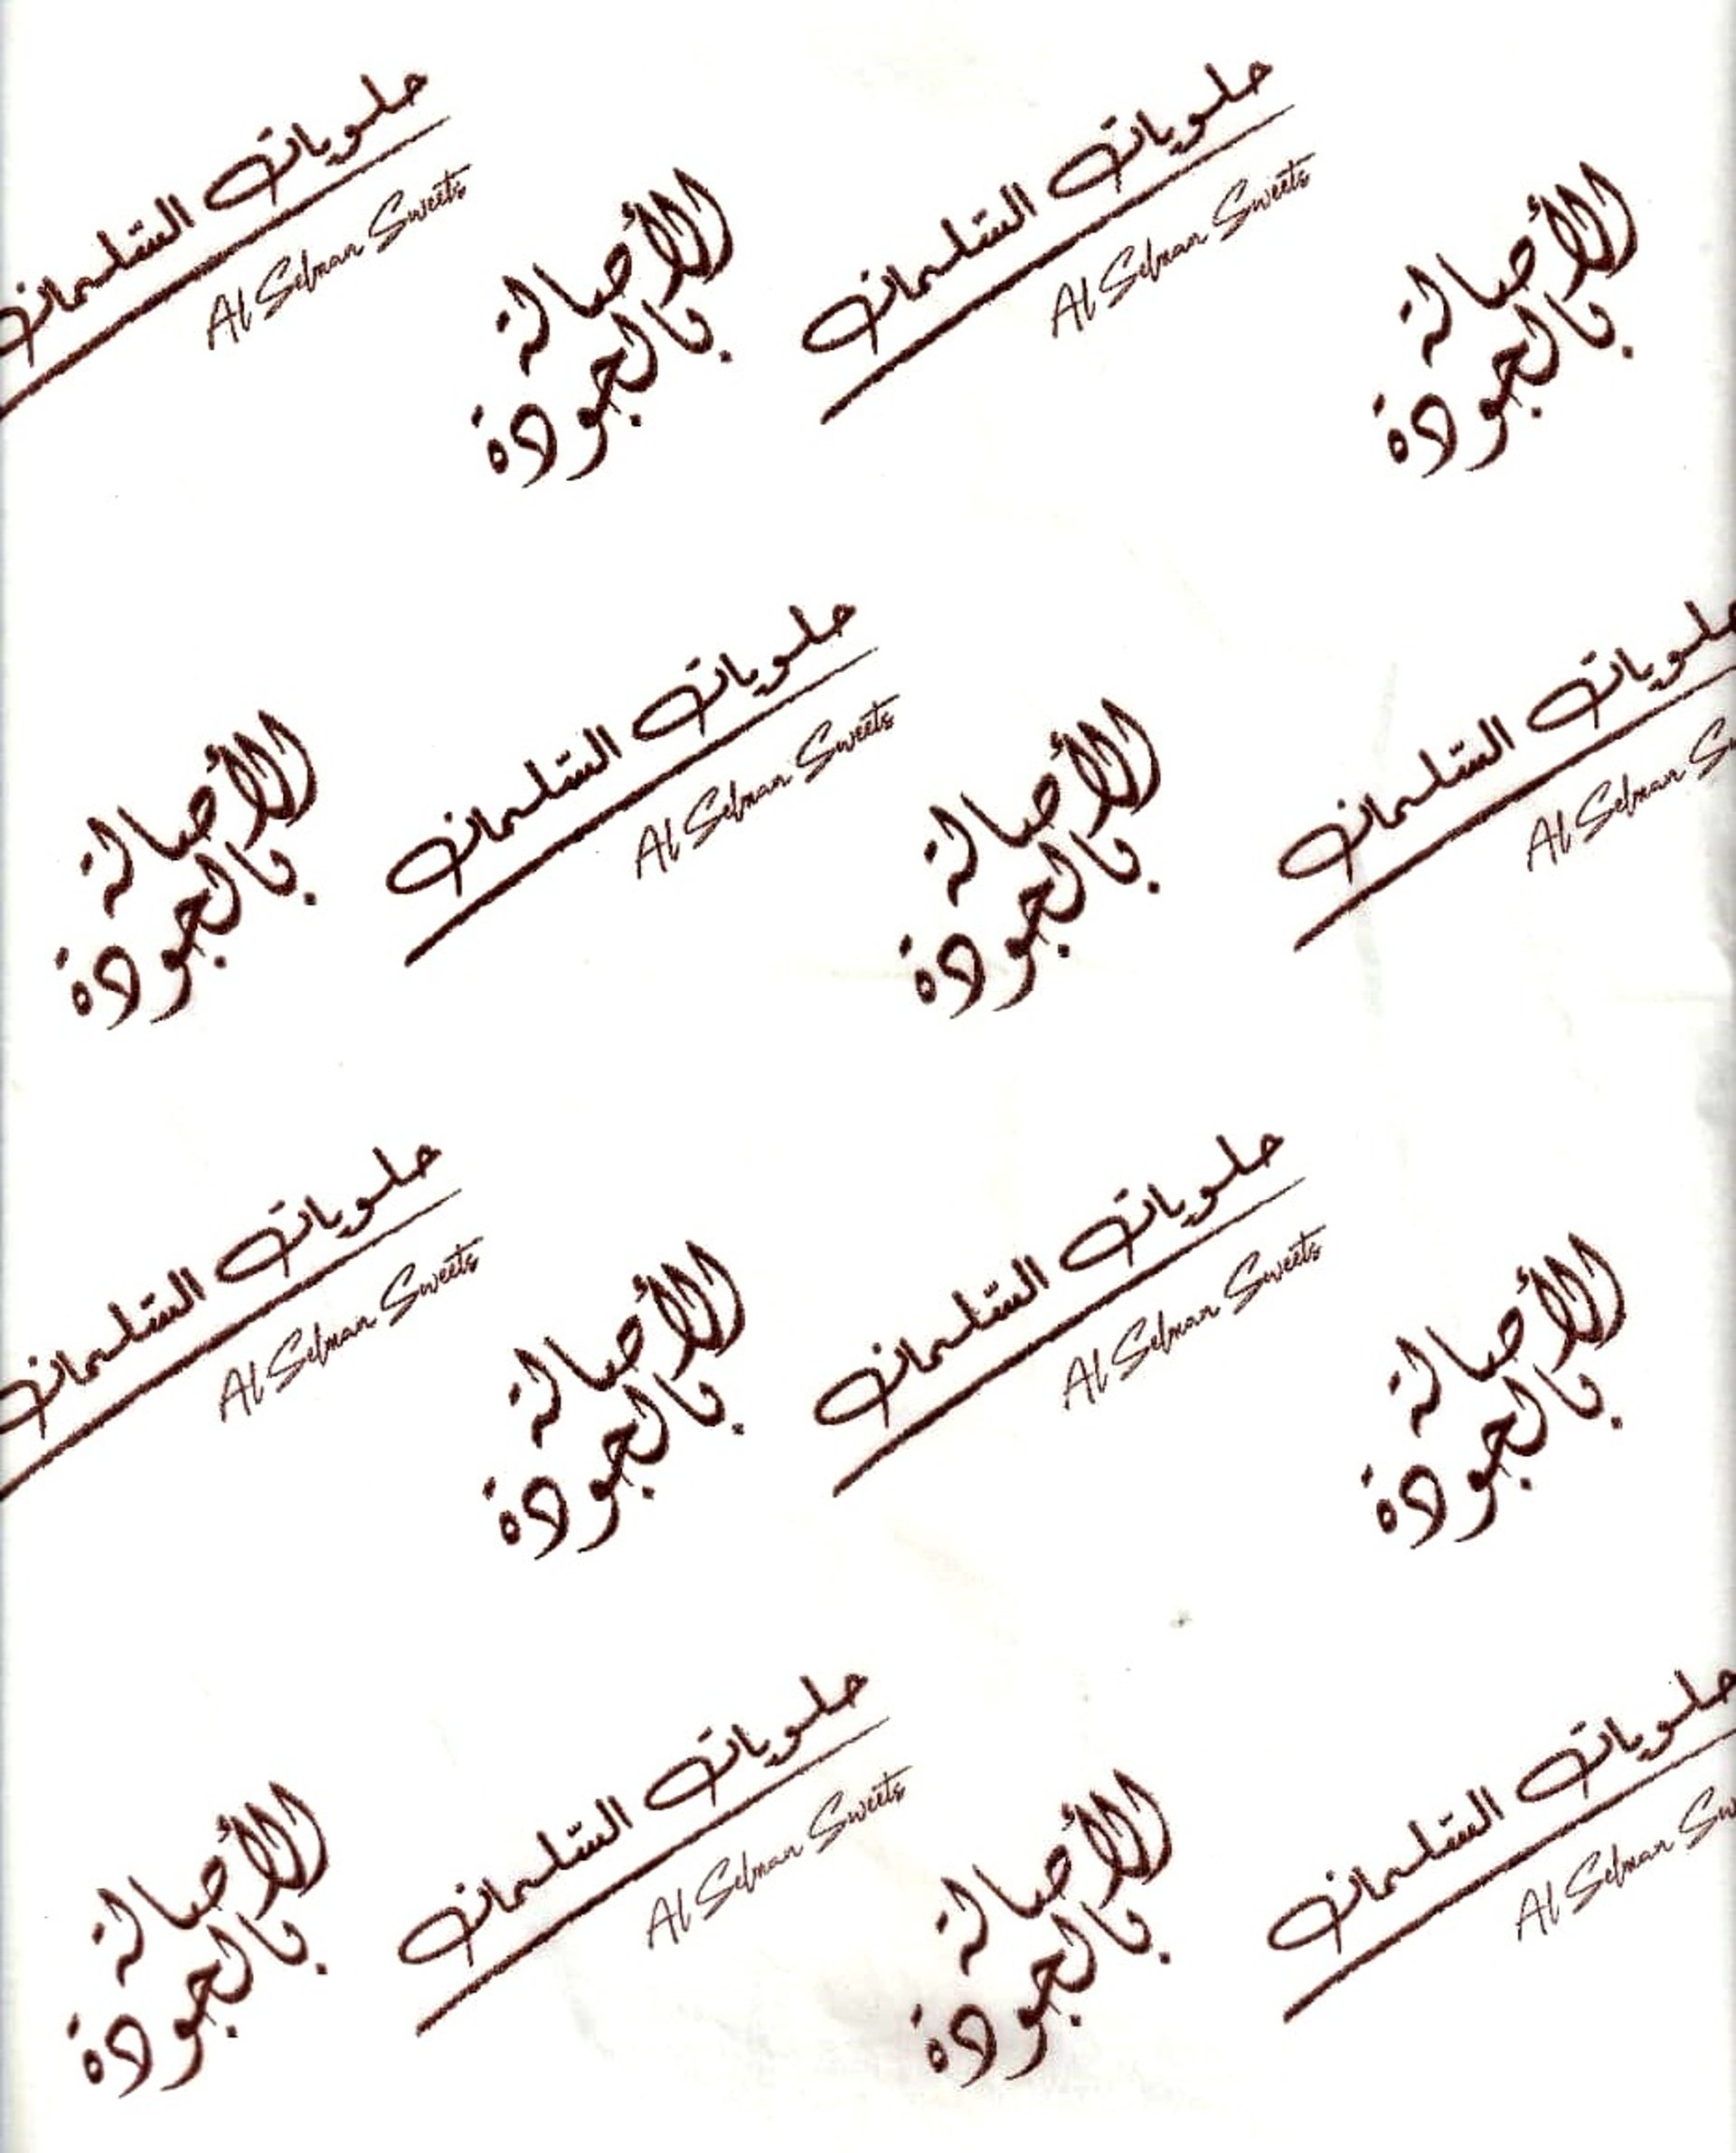 حلويات السلمان
Al Selman Sweets
الأصالة
بالجودة
حلويات السلمان
Al Selman Sweets
الأصالة
بالجودة
الأصالة
بالجودة
حلويات السلمان
Al Selman Sweets
الأصالة
بالجودة
حلويات السلمان
Al Selman S
حلويات السلمان
Al Selman Sweets
الأصالة
بالجودة
حلويات السلمان
Al Selman Sweets
الأصالة
بالجودة
الأصالة
بالجودة
حلويات السلمان
Al Selman Sweets
الأصالة
بالجودة
حلويات السلمان
Al Selman Sw